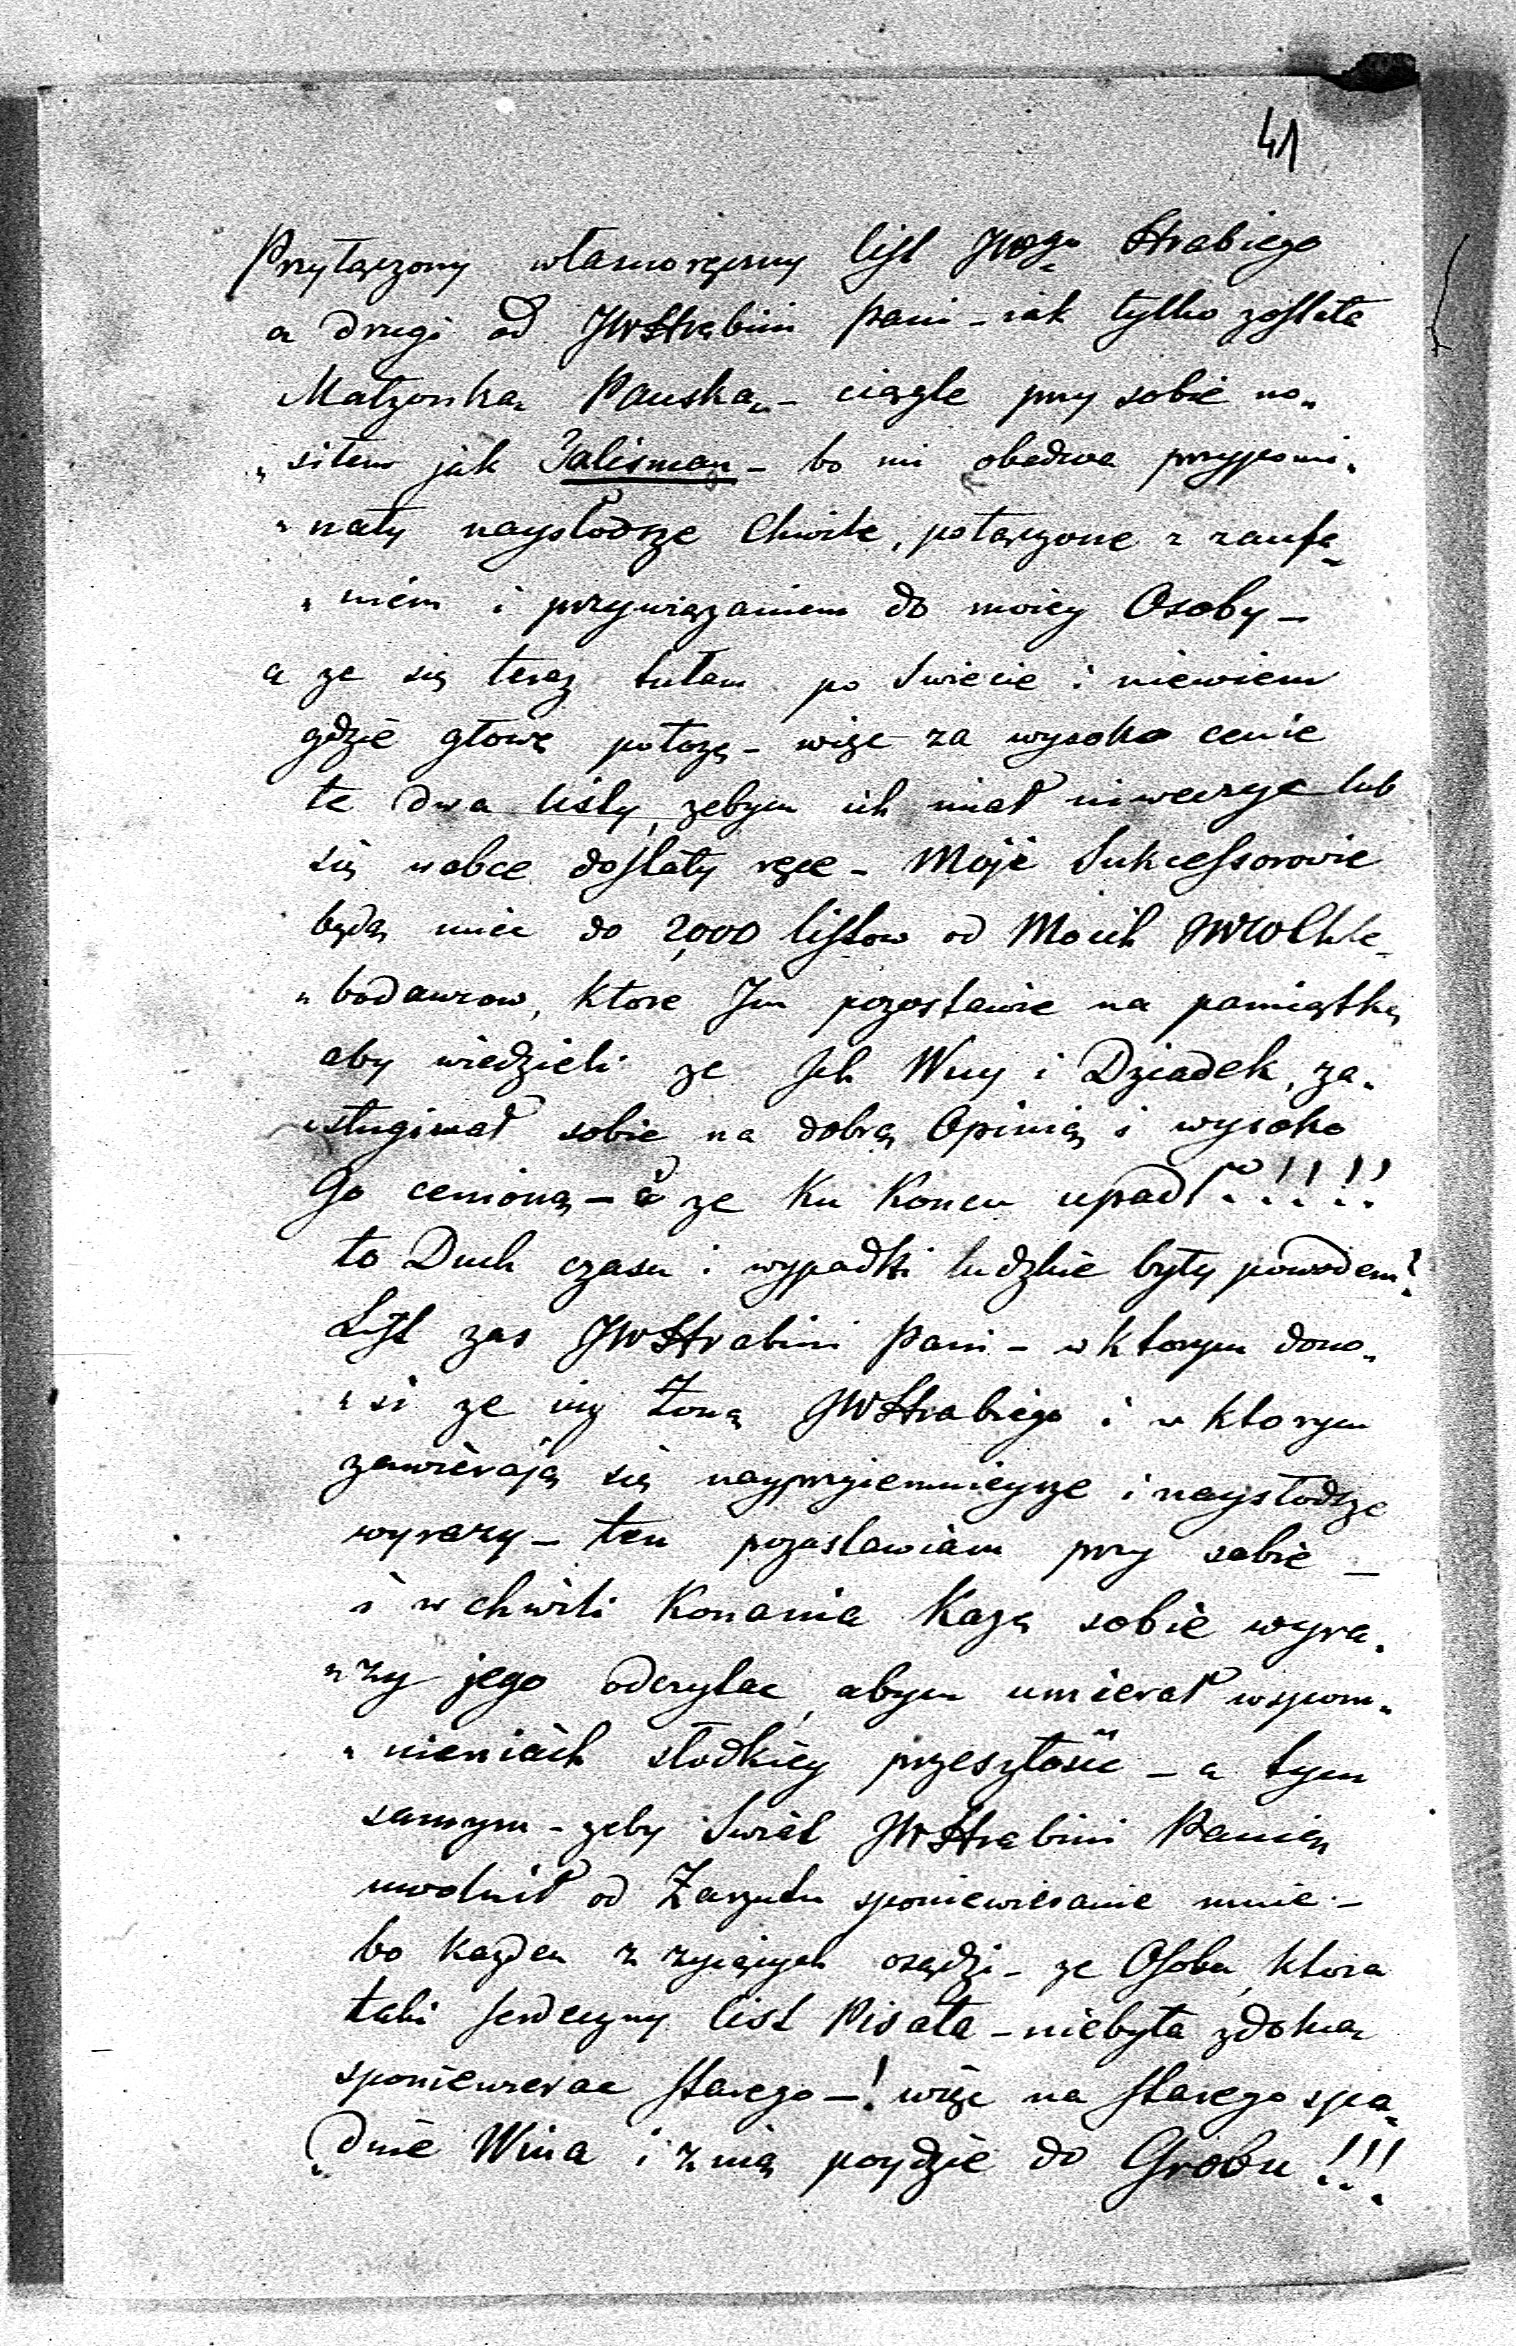 41
Przyłączony własnoręczny list JWgo Hrabiego
a drugi od JWHrabini Pani - iak tylko została
Małzonką Pańską - ciągle przy sobie no„
„siłem jak Talisman - bo mi obadwa przypomi„
„nały naysłodsze Chwile, połączone z zaufa„
„niem i przywiązaniem do moiey Osoby -
a ze się teraz tułam po swiecie i niewiem
gdzie głowę połozę - więc za wysoko cenie
te dwa listy, zebym ich miał niweczyc lub
się wobce dostały ręce - Moje Sukcessorowie
będą miec do 2,000 listow od Moich JWW Chle„
„bodawcow, ktore Im pozostawie na pamiątkę
aby wiedzieli ze Ich Wuy i Dziadek, za„
„sługiwał sobie na dobrą Opinią i wysoko
Go cenioną - a ze Ku Koncu upadł!!!!
to Duch czasu i wypadki ludzkie były powodem!
List zas JWHrabini Pani - w ktorym dono„
„si ze iuz Zoną JWHrabiego i w ktorym
zawierają się nayprzyiemnieysze i naysłodsze
wyrazy - ten pozostawiam przy sobie -
i w chwili Konania Kazę sobie wyra„
„zy jego odczytac, abym umierał w spom„
„nieniach słodkiey przeszłośći - a tym
samym - zeby Swiat JWHrabini Panią
uwolnił od Zarzutu sponiewierania mnie -
bo Kazden z zyiących osądzi - ze Osoba, ktora
taki serdeczny list Pisała - niebyła zdolna
sponiewierac starego - ! więc na starego spa„
„dnie Wina i z nią poydzie do Grobu!!!